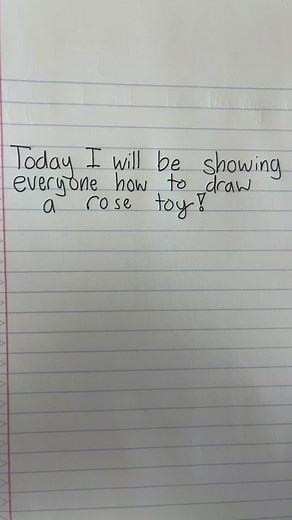 Today I will be showing
everyone how to draw
a rose toy!